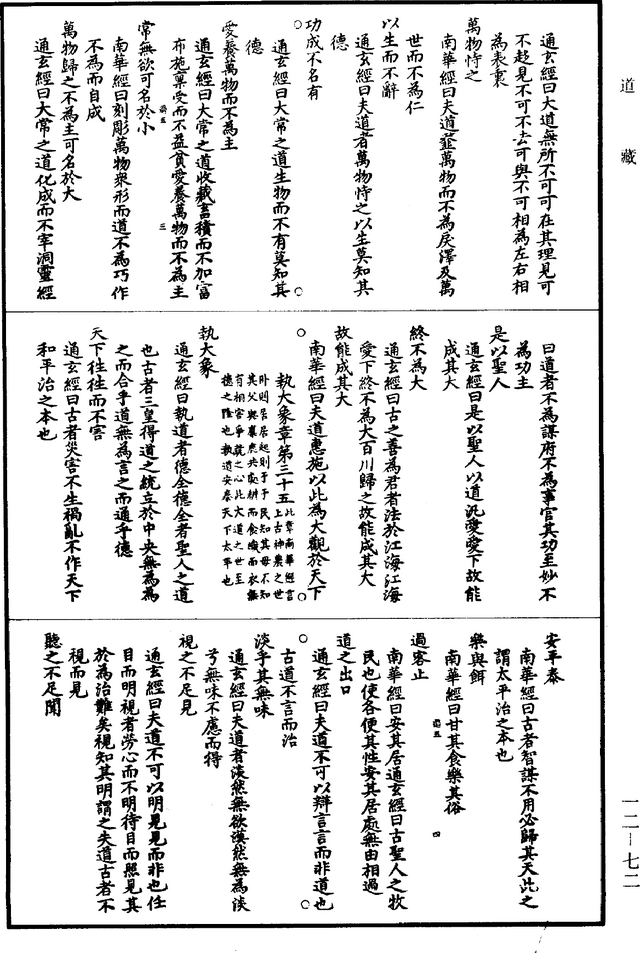 道藏
通玄經曰大道無所不可可在其理見可
不趍見不可不去可與不可相為左右相
為表裏
萬物恃之
南華經曰夫道虀萬物而不為戾澤及萬
世而不為仁
以生而不辭
通玄經曰夫道者萬物恃之以生莫知其
德
功成不名有
通玄經曰大常之道生物而不有莫知其
德
愛養萬物而不為主
通玄經曰大常之道收藏畜積而不加富
布施稟受而不益貧愛養萬物而不為主
常無欲可名於小
三
南華經曰刻彫萬物衆形而道不為巧作
不為而自成
萬物歸之不為主可名於大
通玄經曰大常之道化成而不宰洞靈經
曰道者不為謀府不為事官其功至妙不
為功主
是以聖人
通玄經曰是以聖人以道汎愛愛下故能
成其大
終不為大
通玄經曰古之善為君者法於江海江海
愛下終不為大百川歸之故能成其大
故能成其大
南華經曰夫道惠施以此為大觀於天下
執大象章第三十五
此章南華經言
上古神農之世
卧則居居起則于于民知其母不知
其父與麋鹿共處耕而食織而衣無
有相害爭競之心此大道之世至
德之隆也執道安泰天下太平也
執大象
通玄經曰執道者德全德全者聖人之道
也古者三皇得道之統立於中央無為為
之而合乎道無為言之而通乎德
天下往往而不害
通玄經曰古者災害不生禍亂不作天下
和平治之本也
安平泰
南華經曰古者智謀不用必歸其天此之
謂太平治之本也
樂與餌
南華經曰甘其食樂其俗
四
過客止
南華經曰安其居通玄經曰古聖人之牧
民也使各便其性安其居處無由相過
道之出口
通玄經曰夫道不可以辯言言而非道也
古道不言而治
淡乎其無味
通玄經曰夫道者淡然無欲漠然無為淡
兮無味不慮而得
視之不足見
通玄經曰夫道不可以明見見而非也任
目而明視者勞心而不明待目而照見其
於為治難矣視知其明謂之失道古者不
視而見
聽之不足聞
一二—七二